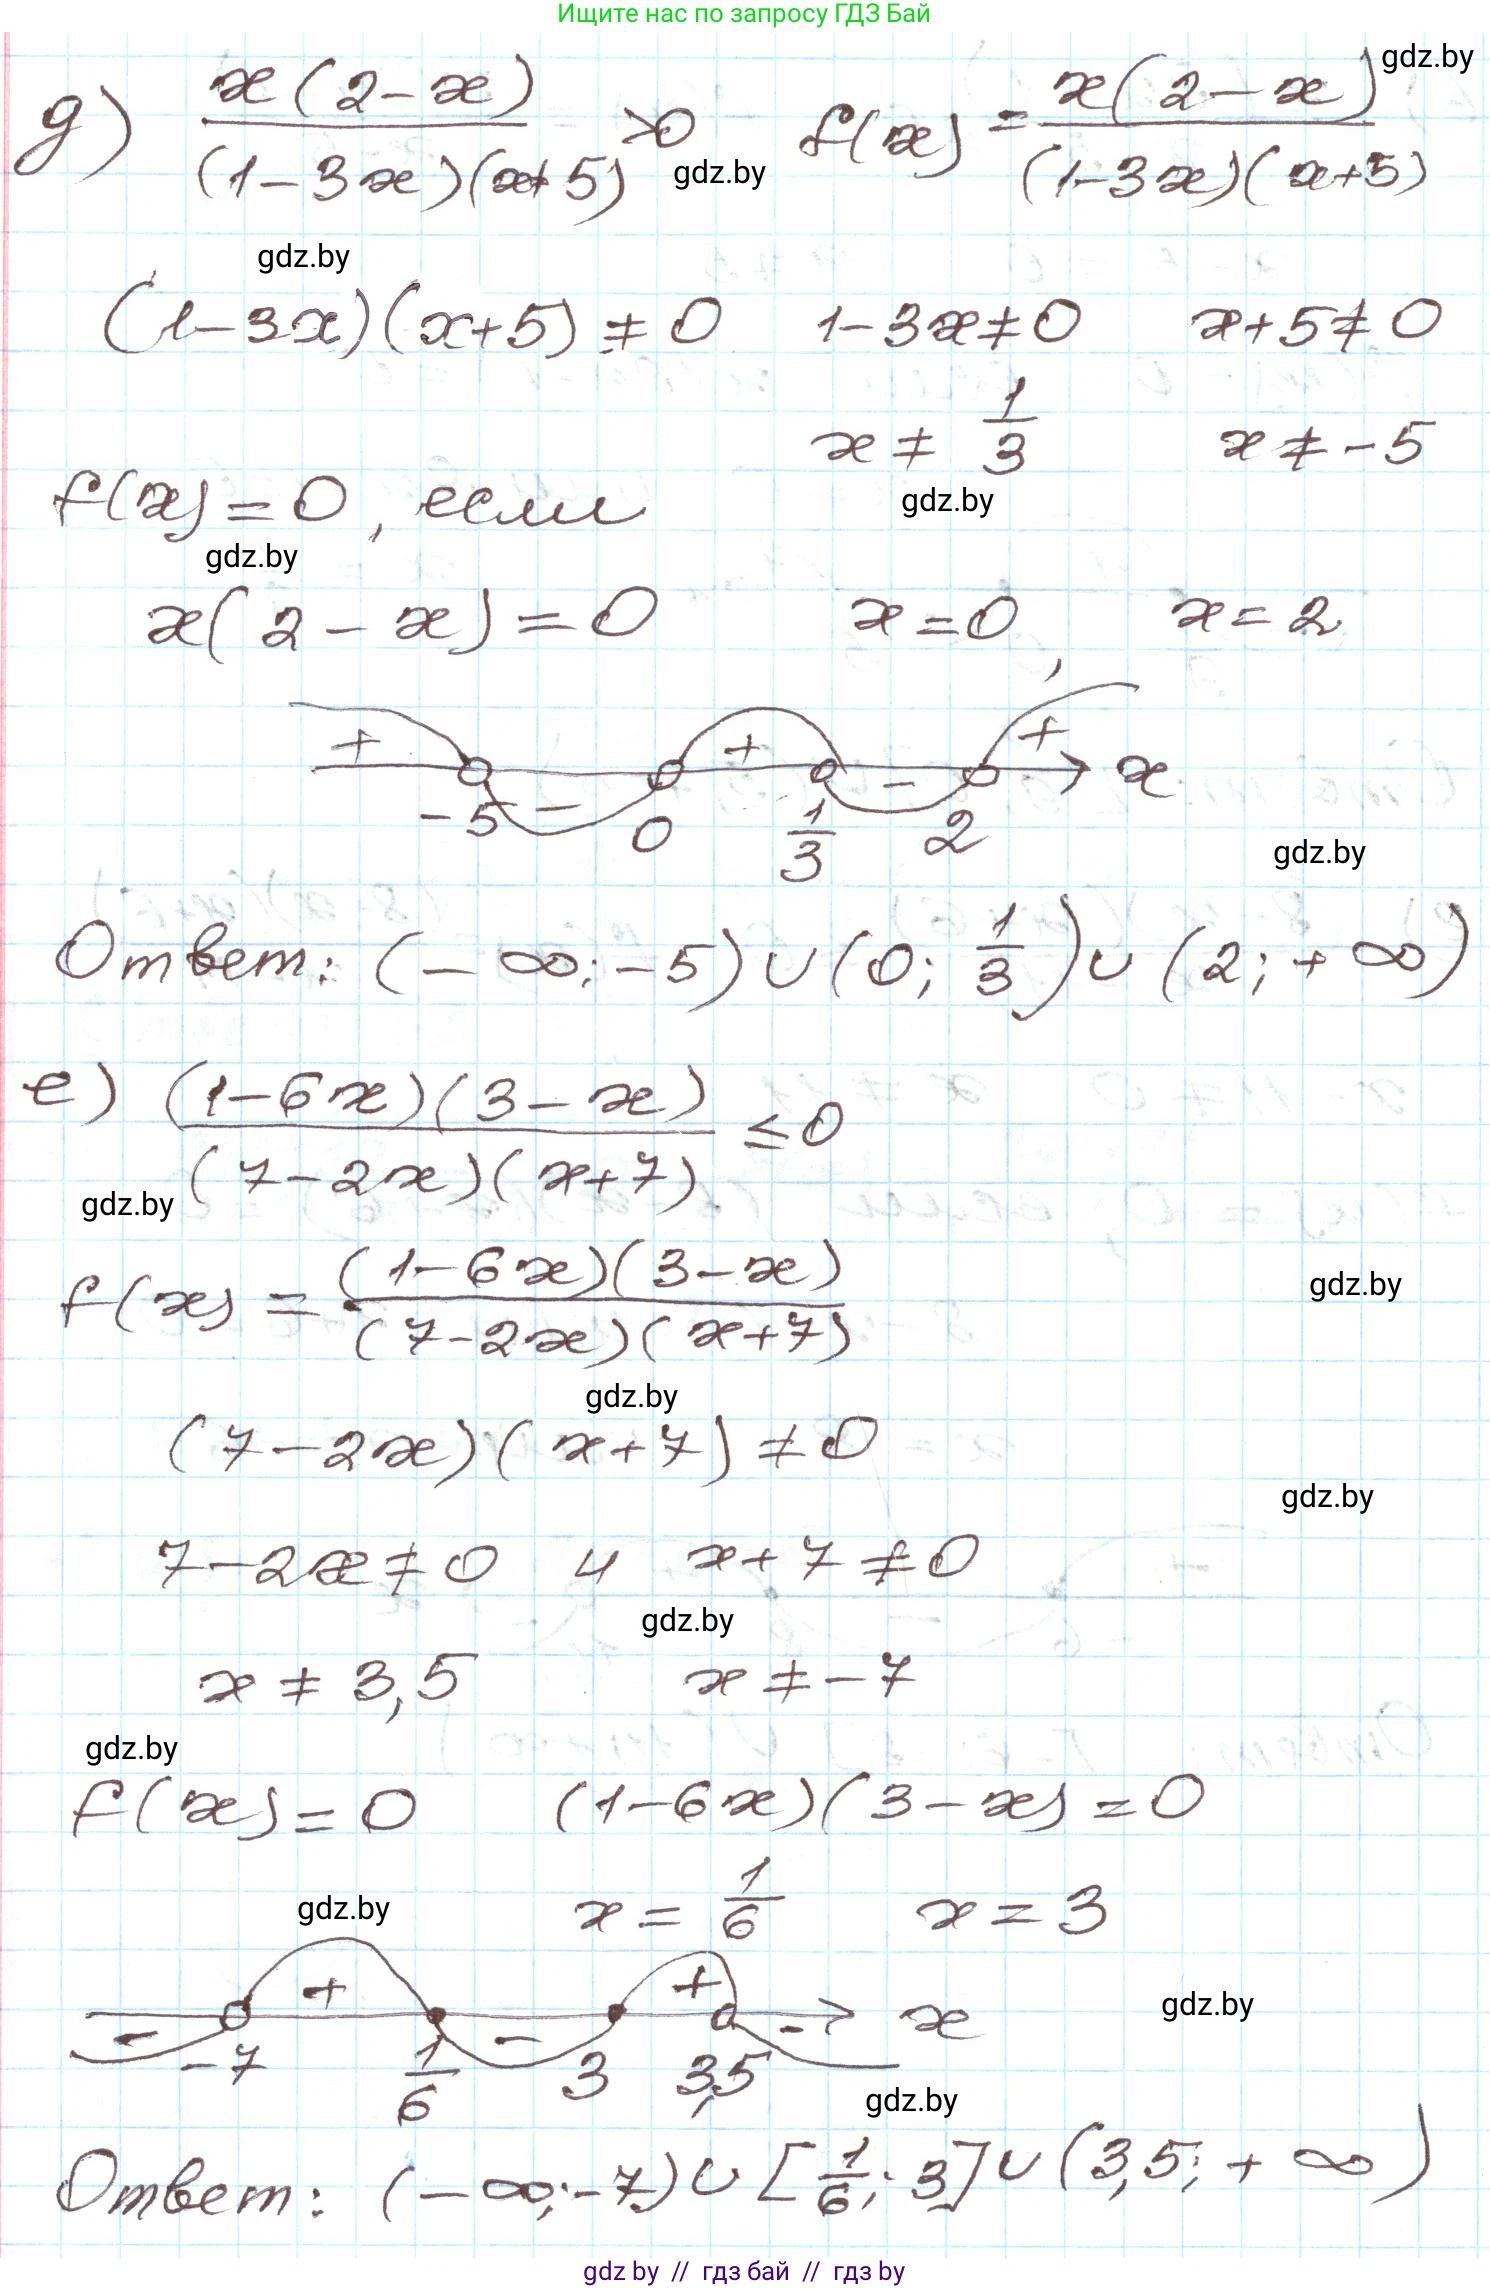 Ищите нас по запросу ГДЗ Бай
gdz.by
д) x(2-x)/((1-3x)(x+5)) >0 f(x) = x(2-x)/((1-3x)(x+5))
gdz.by
gdz.by
(1-3x)(x+5) ≠ 0 1-3x≠0 x+5≠0
x ≠ 1/3 x ≠ -5
f(x) = 0, если
gdz.by
gdz.by
x(2-x) = 0 x=0, x=2
+ - + - + x
-5 0 1/3 2
gdz.by
Ответ: (-∞; -5) ∪ (0; 1/3) ∪ (2; +∞)
е) (1-6x)(3-x)/((7-2x)(x+7)) ≤ 0
gdz.by
f(x) = (1-6x)(3-x)/((7-2x)(x+7))
gdz.by
gdz.by
(7-2x)(x+7) ≠ 0
gdz.by
7-2x≠0 и x+7≠0
gdz.by
x ≠ 3,5 x ≠ -7
gdz.by
f(x) = 0 (1-6x)(3-x) = 0
gdz.by
x = 1/6 x = 3
- + - + - x
gdz.by
-7 1/6 3 3,5
gdz.by
Ответ: (-∞; -7) ∪ [1/6; 3] ∪ (3,5; +∞)
gdz by // гдз бай // гдз by